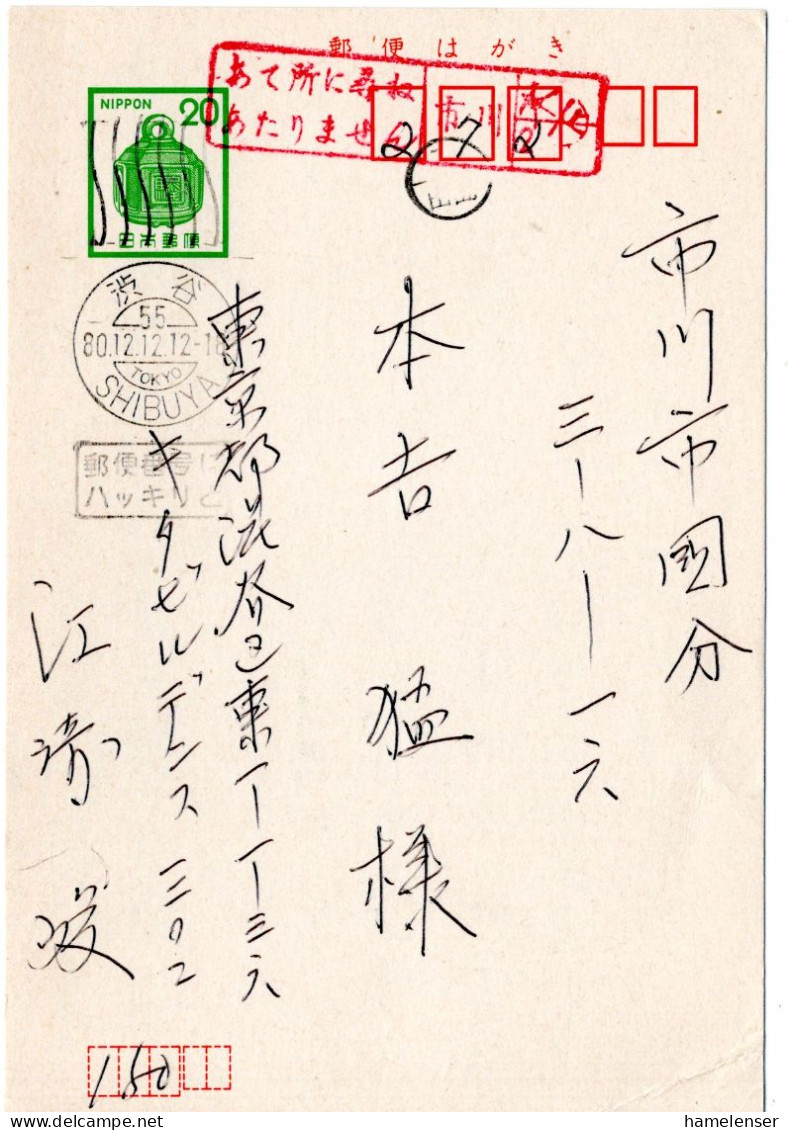 郵便はがき
NIPPON 20
日本郵便
あて所に尋ね
あたりません
市川
272
渋谷
55
80.12.12.12-18
TOKYO
SHIBUYA
郵便番号は
ハッキリと
市川市国分
三ー八ー一六
本吉 猛様
東京都渋谷区東一ー一ー三六
キタゼルデンス 三〇二
江
150
hamelenser.com